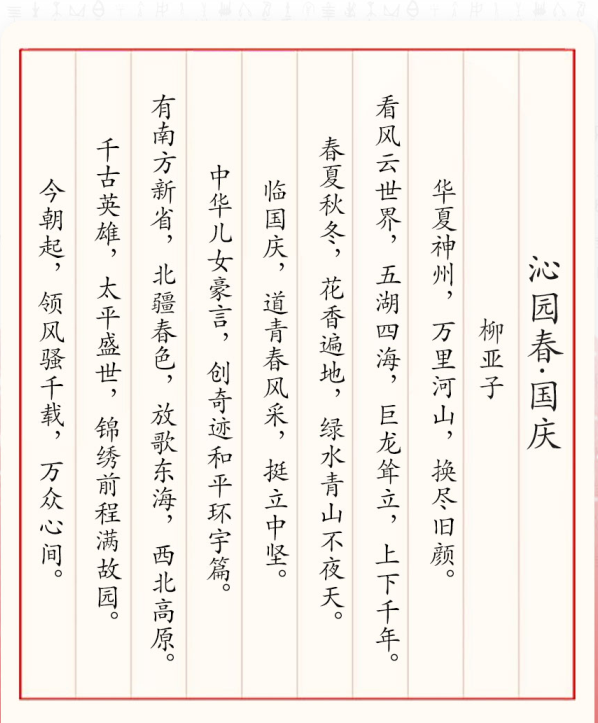 沁园春·国庆
柳亚子
华夏神州，万里河山，换尽旧颜。
看风云世界，五湖四海，巨龙耸立，上下千年。
春夏秋冬，花香遍地，绿水青山不夜天。
临国庆，道青春风采，挺立中坚。
中华儿女豪言，创奇迹和平环宇篇。
有南方新省，北疆春色，放歌东海，西北高原。
千古英雄，太平盛世，锦绣前程满故园。
今朝起，领风骚千载，万众心间。